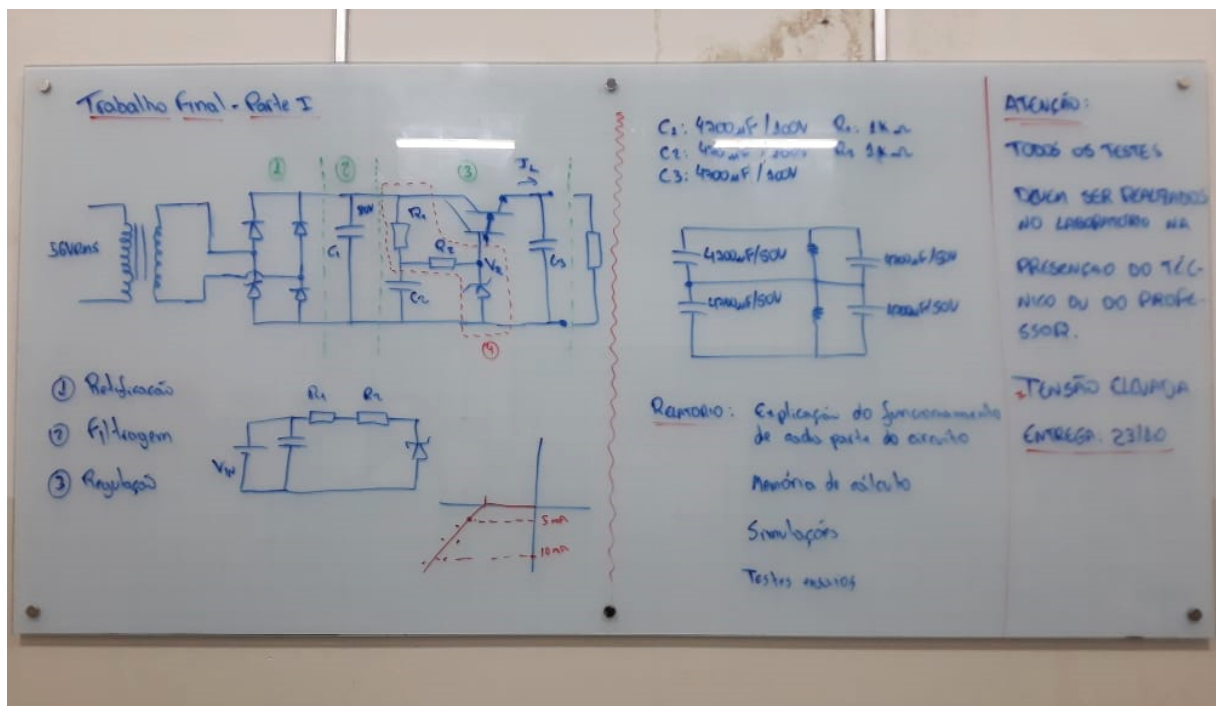 Trabalho Final - Parte I
① ② ③
I_L
56VRMS
80V
C1
R1
R2
C2
V_Z
C3
④
① Retificação
② Filtragem
③ Regulação
R1 R2
VIN
5mA
10mA
C1: 4700µF/100V R1: 1KΩ
C2: R2 1KΩ
C3: 4700µF/100V
4700µF/50V 4700µF/50V
4700µF/50V 4700µF/50V
RELATORIO: Explicação do funcionamento
de cada parte do circuito
Memória de cálculo
Simulações
Testes ensaios
ATENÇÃO:
TODOS OS TESTES
DEVEM SER REALIZADOS
NO LABORATÓRIO NA
PRESENÇA DO TÉC-
NICO OU DO PROFE-
SSOR.
TENSÃO ELEVADA
ENTREGA: 23/10